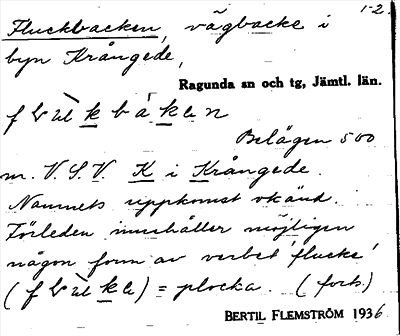 1-2.
Fluckbacken, vägbacke i
byn Krångede,
Ragunda sn och tg, Jämtl. län.
Belägen 500
m. V.S.V. K i Krångede.
Namnets uppkomst okänd.
Förleden innehåller möjligen
någon form av verbet 'flucke'
= plocka. (forts.)
BERTIL FLEMSTRÖM 1936